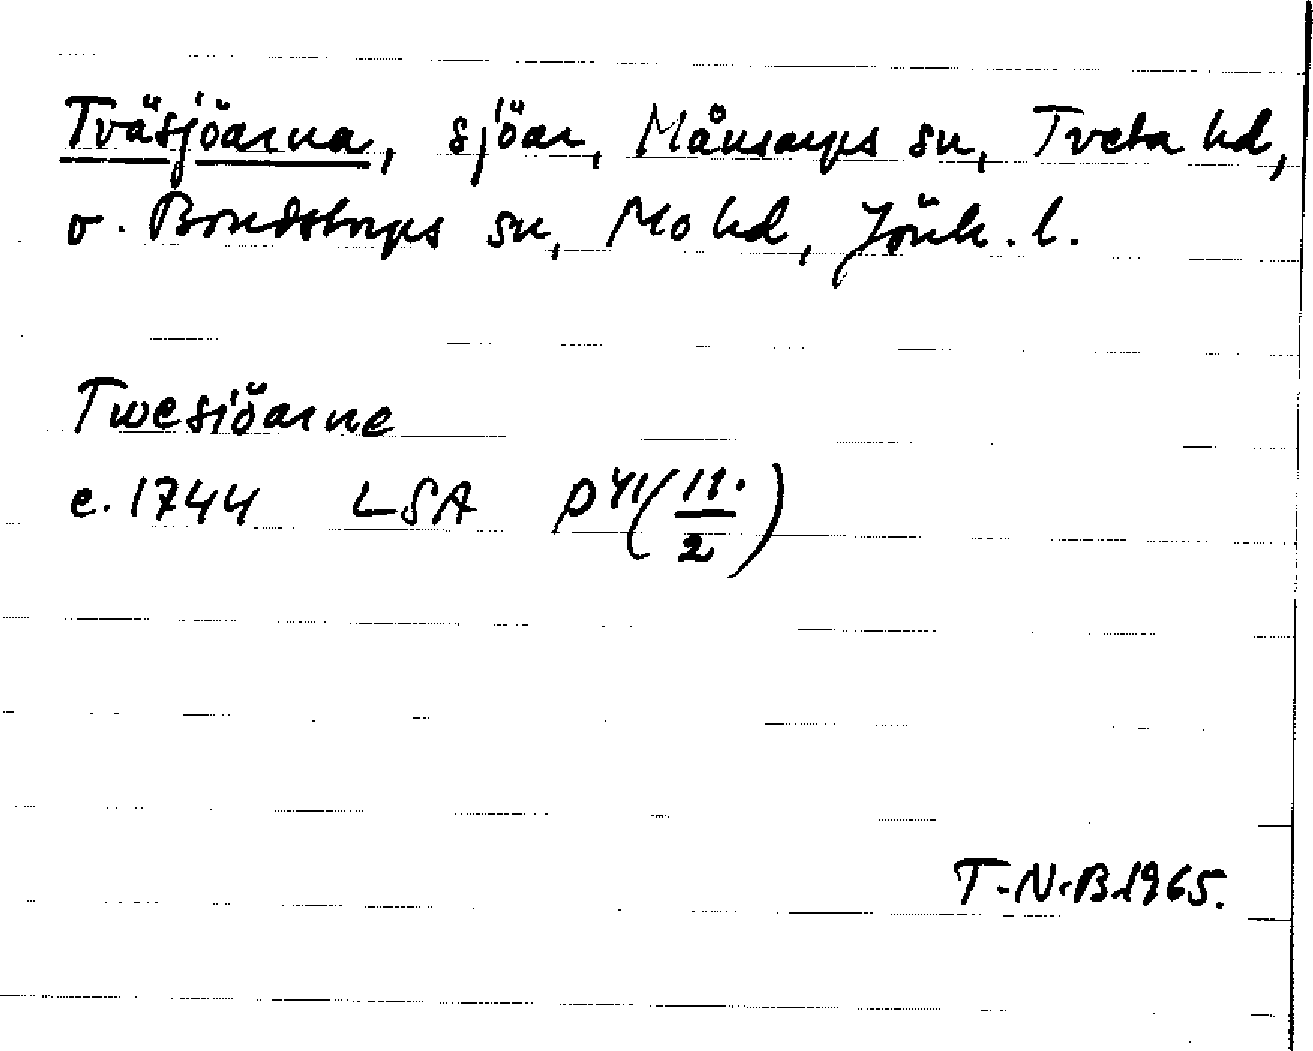 Tväsjöarna, sjöar, Månsarps sn, Tveta hd,
o. Bondstorps sn, Mo hd, Jönk. l.
Twesiöarne
c. 1744 LSA P41(11./2)
T.N.B 1965.